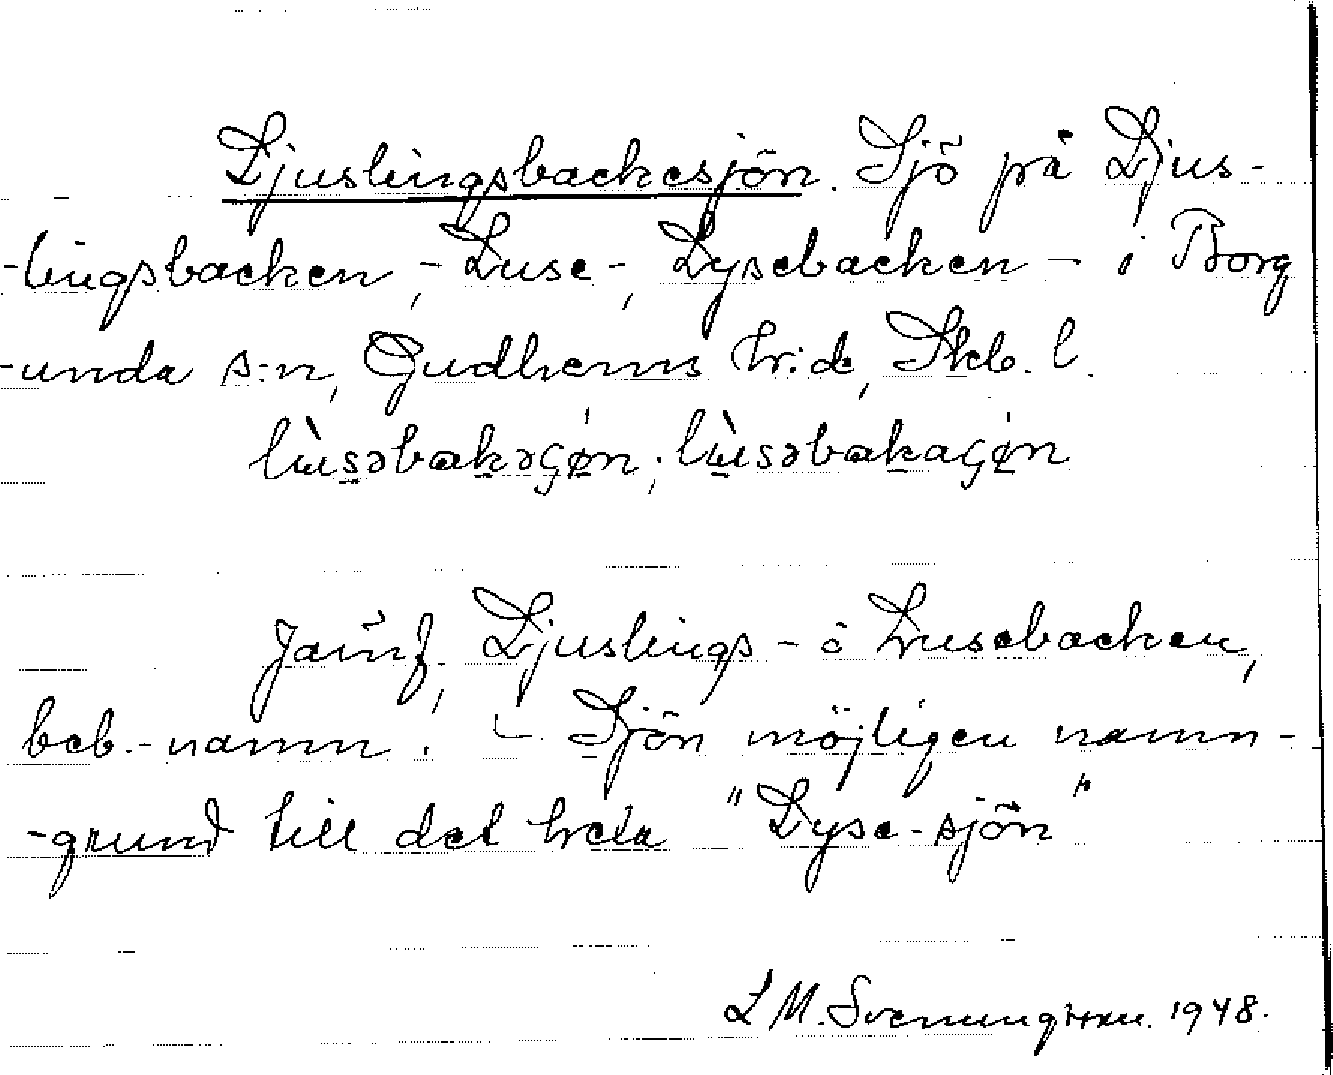 Ljuslingsbackesjön. Sjö på Ljus-
-lingsbacken, - Luse-, Lysebacken - i Borg
-unda s:n, Gudhems hr:d, Skb. l.
lùsəbakəςøn; lùsəbakaςøn
Jämf. Ljuslings- o Lusebacken,
beb.-namn. - Sjön möjligen namn-
-grund till det hela "Lyse-sjön"
L M. Svenungsson. 1948.